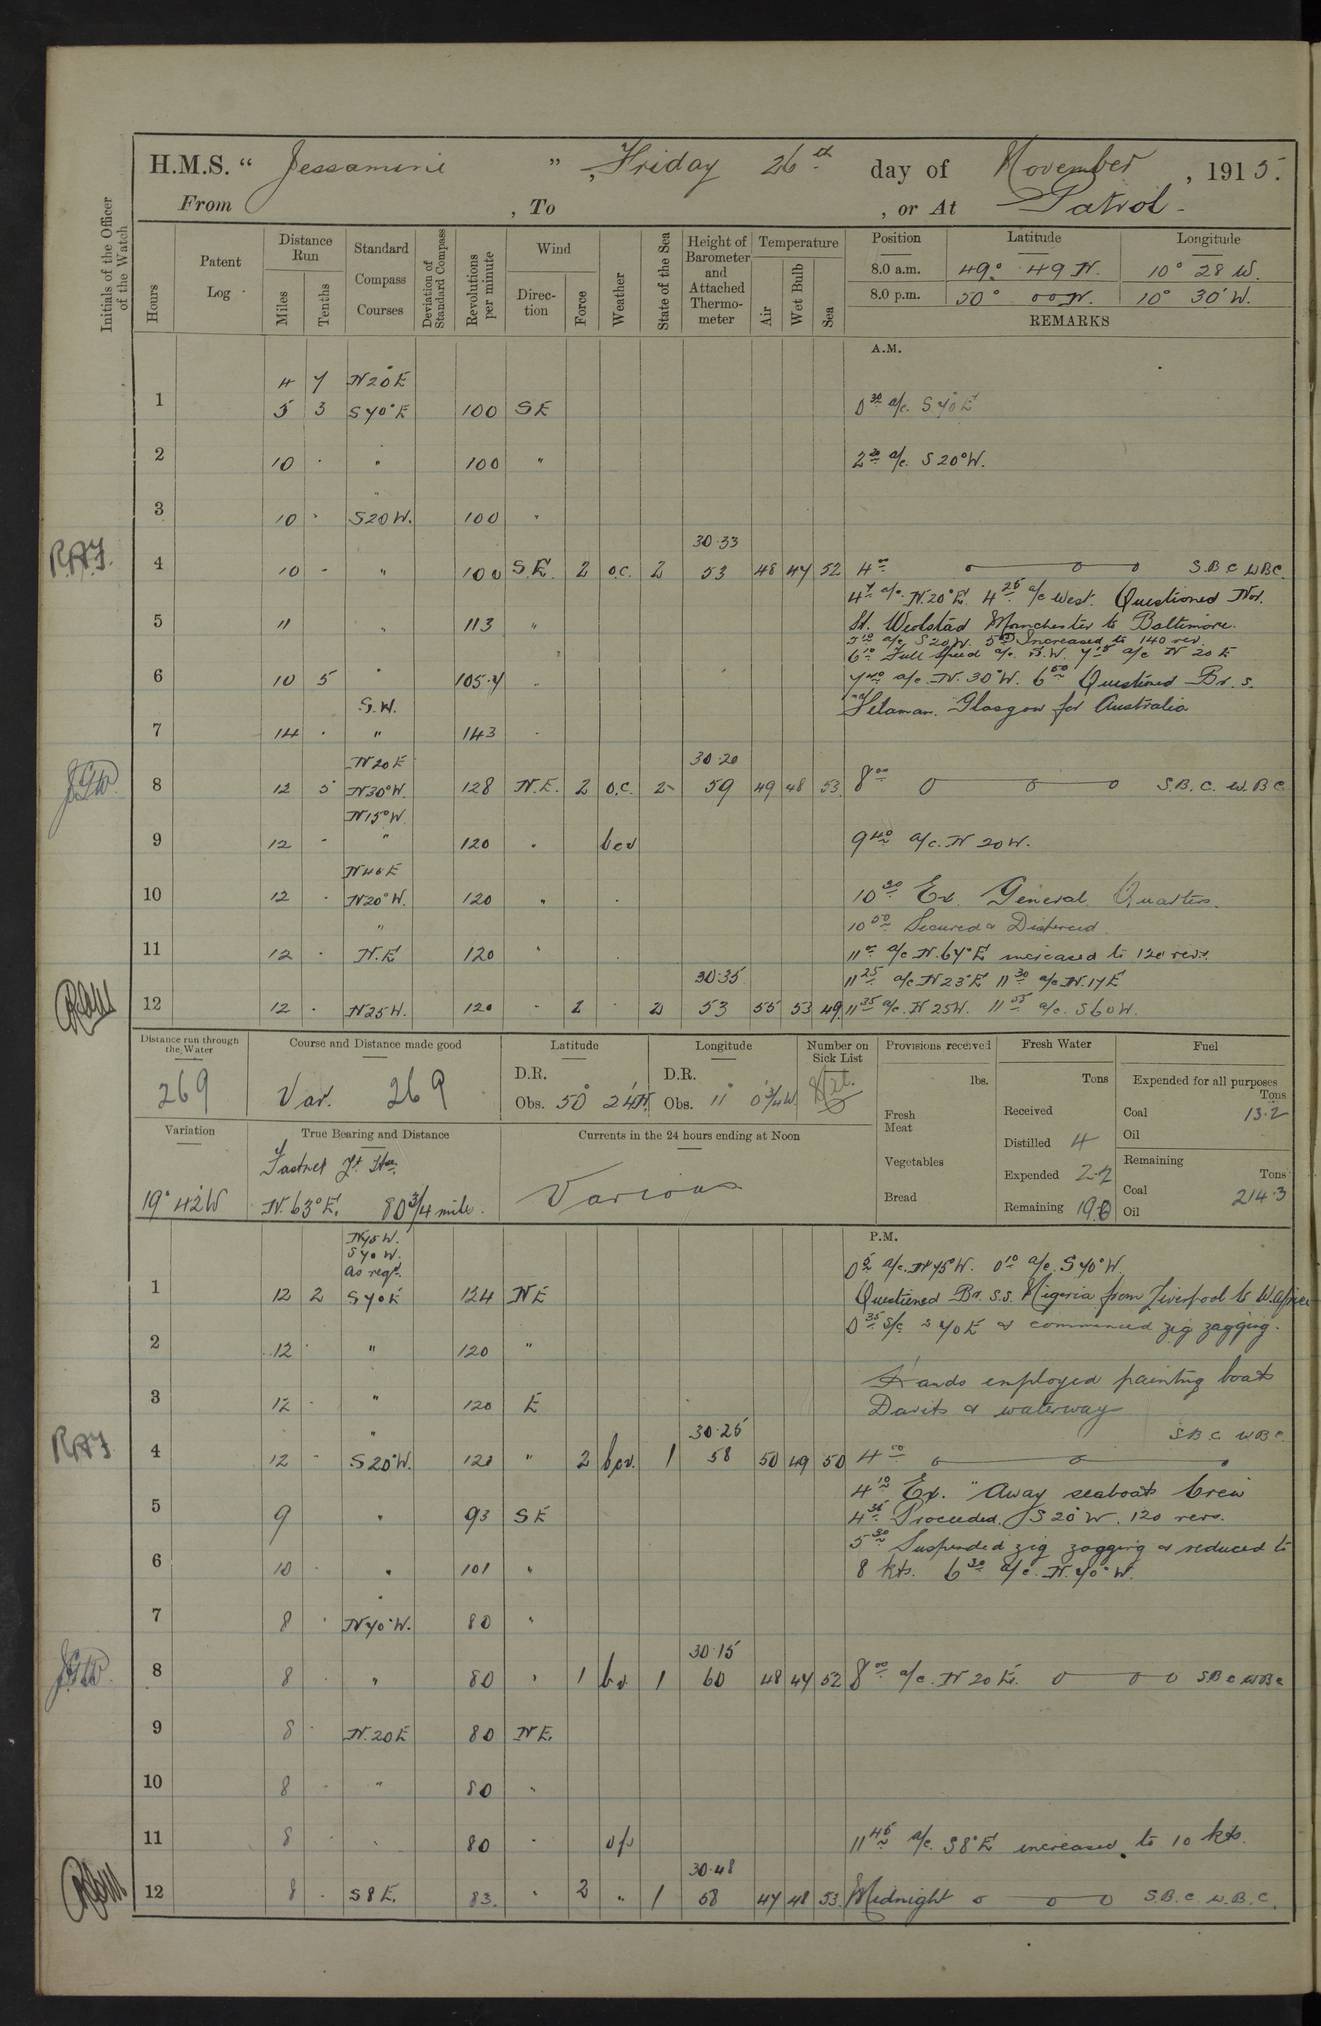 H.M.S. “ Jessamine ” , Friday 26th day of November , 1915.
From , To , or At Patrol -
Initials of the Officer of the Watch
Hours Patent Log Distance Run Miles Tenths Standard Compass Courses Deviation of Standard Compass Revolutions per minute Wind Direction Force Weather State of the Sea Height of Barometer and Attached Thermometer Temperature Air Wet Bulb Sea
Position Latitude Longitude
8.0 a.m. 49° 49 N. 10° 28 W.
8.0 p.m. 50° 00 N. 10° 30' W.
REMARKS
A.M.
4 7 N20°E
1 5 3 S70°E 100 SE 0 30 a/c. S70°E
2 10 . " 100 " 2 30 a/c. S20°W.
3 10 . S20W. 100 "
30.33
R.A.J. 4 10 - " 100 S.E. 2 o.c. 2 53 48 47 52 4 00 S.B.C WBC.
4 7 a/c. N.20°E. 4 25 a/c West. Questioned Nor.
5 11 " 113 " Manchester to Baltimore.
5 10 a/c S20W. 5 Increased to 140 rev.
6 10 Full Speed a/c. S.W. 7 15 a/c N 20 E
6 10 5 " 105.7 " 7 40 a/c. N. 30°W. 6 50 Questioned Br. s.
S.W. Glasgow for Australia
7 14 . " 143 "
N20E 30.20
8 12 5 N30°W. 128 N.E. 2 o.c. 2 59 49 48 53 8 00 S.B.C. W.B C
N15°W
9 12 - " 120 " bcv 9 40 a/c. N 20W.
N40E
10 12 . N20°W. 120 " . 10 30 Ex. General Quarters.
" 10 50 Secured & Dispersed
11 12 . N.E 120 " 11 00 a/c N.64°E increased to 120 revs.
30.35 11 25 a/c N23°E 11 30 a/c N.17E
12 12 . N25W. 120 - 2 . 2 53 55 53 49 11 35 a/c. N 25W. 11 55 a/c. S60W.
Distance run through the Water Course and Distance made good Latitude Longitude Number on Sick List Provisions received Fresh Water Fuel
269 Var. 269
D.R. D.R.
Obs. 50° 24'N. Obs. 11° 0 3/4 W.
lbs. Tons Expended for all purposes Tons
Fresh Meat Received Coal 13.2
Oil
Variation True Bearing and Distance Currents in the 24 hours ending at Noon
Distilled 4
Vegetables Remaining Tons
Expended 2.2
Fastnet Lt Hse
19° 42'W N.63°E. 80 3/4 mile. Various
Bread Coal 214.3
Remaining 19.0 Oil
P.M.
N75W.
S70W. 0 5 a/c. N75°W. 0 10 a/c. S70°W
as reqd.
1 12 2 S70E 124 NE Questioned Br. s.s. Nigeria from Liverpool to W.africa
0 35 s/c S70E & commenced zig zagging.
2 12 " 120 "
Hands employed painting boats
3 12 - " 120 E Davits & waterway
" 30.25 S.B.C WBC
R.A.J 4 12 - S20°W. 120 " 2 bcv. 1 58 50 49 50 4 00
4 10 Ex. "Away seaboats Crew
5 9 " 93 SE 4 35 Proceeded. S 20°W. 120 revs.
5 30 Suspended zig zagging & reduced to
6 10 " 101 " 8 kts. 6 30 a/c. N.70°W.
7 8 . N70°W. 80 "
30.15
8 8 . " 80 " 1 bv. 1 60 48 47 52 8 00 a/c. N 20E. S B C W B C
9 8 . N.20E 80 NE.
10 8 . " 80 "
11 8 . . 80 " 11 45 a/c. S8°E increased to 10 kts.
30.48
12 8 . S8E. 83. " 2 " 1 58 47 48 53. Midnight S.B.C. W.B.C.